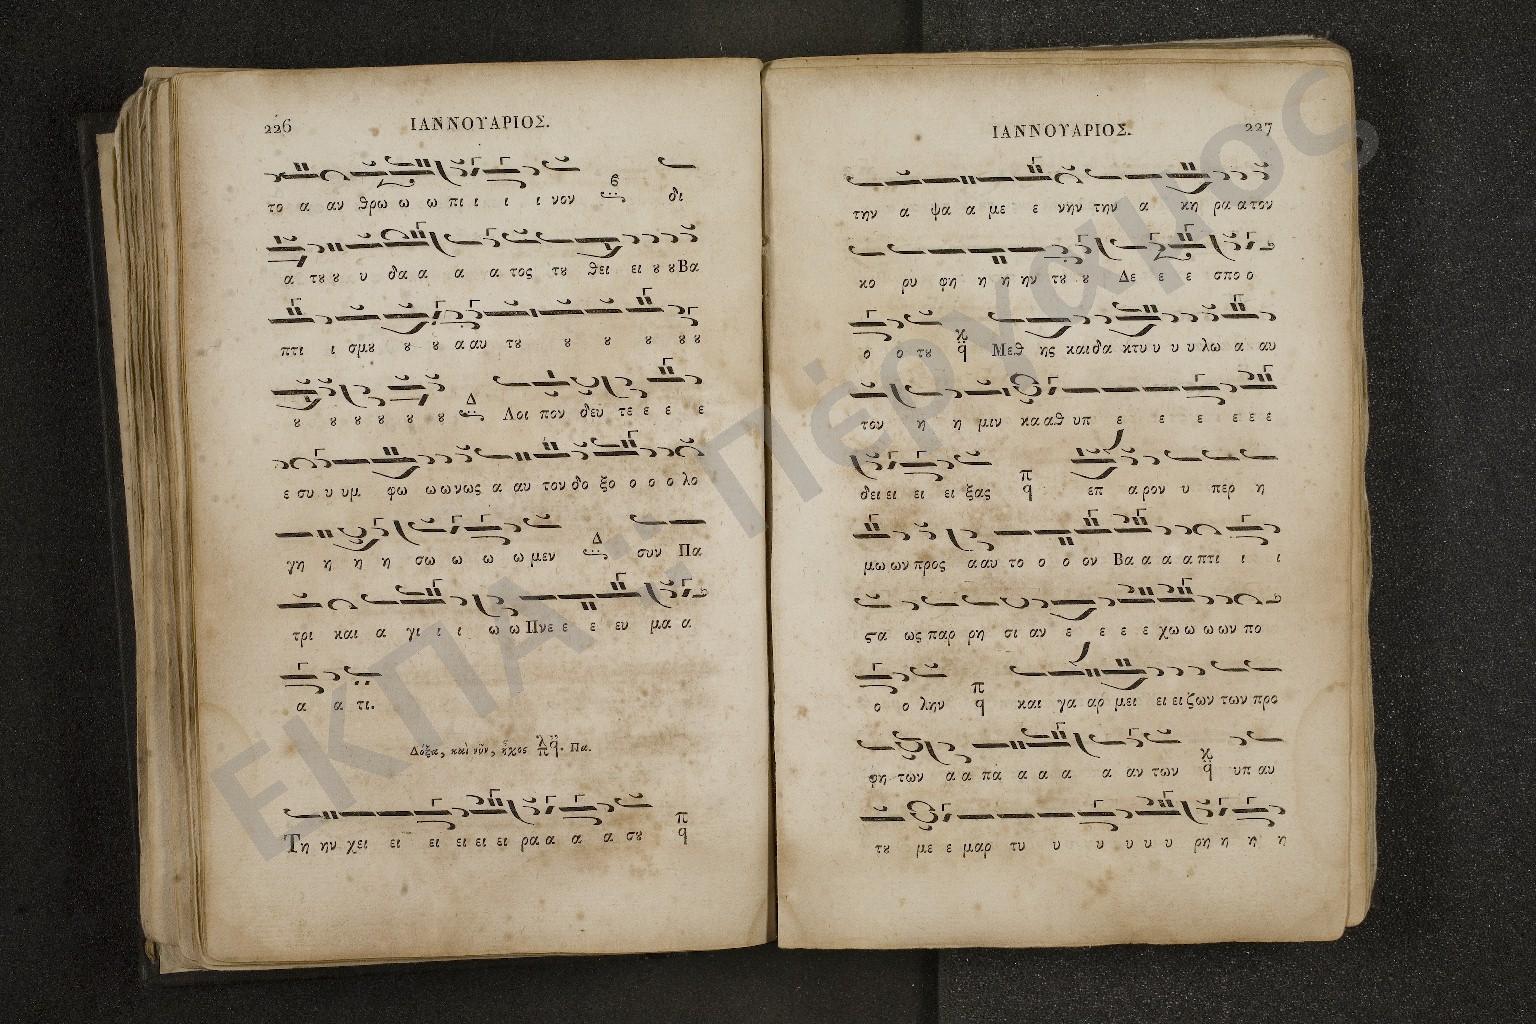 226 ΙΑΝΝΟΥΑΡΙΟΣ.
το α αν θρω ω ω πι ι ι ι νον δι
α τȣ ȣ υ δα α α α τος τȣ θει ει ȣ ȣ Βα
πτι ι σμȣ ȣ ȣ α αυ τȣ ȣ ȣ ȣ ȣȣ
ȣ ȣ ȣ ȣ ȣ ȣ Δ Λοι πον δευ τε ε ε ε
ε συ υ υμ φω ω ω νως α αυ τον δο ξο ο ο ο λο
γη η η η σω ω ω ω μεν Δ συν Πα
τρι και α γι ι ι ω ω Πνε ε ε ευ μα α
α α τι.
Δόξα, καὶ νῦν, ἦχος λ π q. Πα.
Τη ην χει ει ει ει ει ει ρα α α α σȣ π q
ΙΑΝΝΟΥΑΡΙΟΣ. 227
την α ψα α με ε νην την α κη ρα α τον
κο ρυ φη η η ην τȣ ȣ Δε ε ε σπο ο
ο ο τȣ q Μεθ ης και δα κτυ υ υ υ λω α αυ
τον η η μιν κα αθ υπ ε ε ε ε ε ε
δει ει ει ει ξας π q επ α ρον υ περ η
μω ων προς α αυ το ο ο ον Βα α α α πτι ι ι
ϛα ως παρ ρη σι αν ε ε ε ε χω ω ω ων πο
ο ο λην π q και γα αρ μει ει ει ζων των προ
φη των α α πα α α α α αν των q υπ αυ
τȣ με ε μαρ τυ υ υ υ υ υ ρη η η η
ΕΚΠΑ :: Πέργαμος